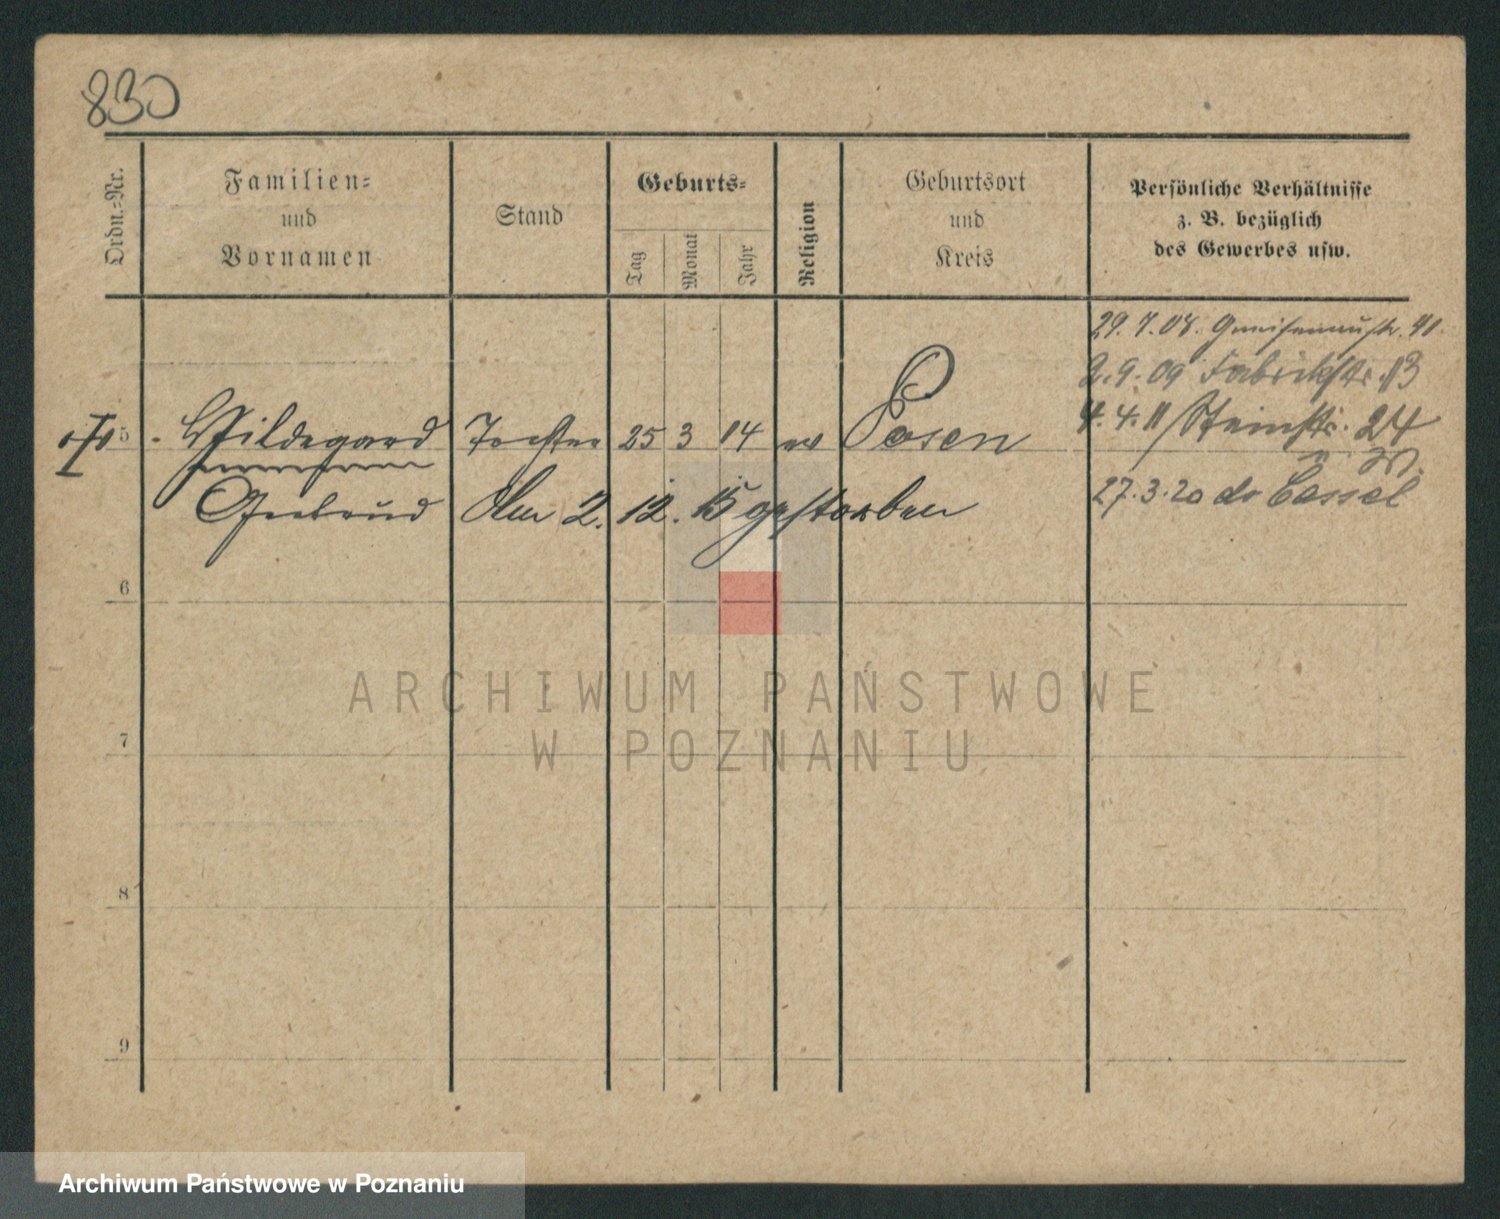 830
Ordn.-Nr.
Familien-
und
Vornamen
Stand
Geburts-
Tag
Monat
Jahr
Religion
Geburtsort
und
Kreis
Persönliche Verhältnisse
z. B. bezüglich
des Gewerbes usw.
29. 7. 08. Gneisenaustr. 41
2. 9. 09 Fabrikstr. 13
4. 4. 11 Steinstr. 24
5 Hildegard Tochter 25 3 14 ev Posen
27. 3. 20 do Cassel
Gertrud Am 2. 12. 15 gestorben
6
7
8
9
ARCHIWUM PAŃSTWOWE
W POZNANIU
Archiwum Państwowe w Poznaniu